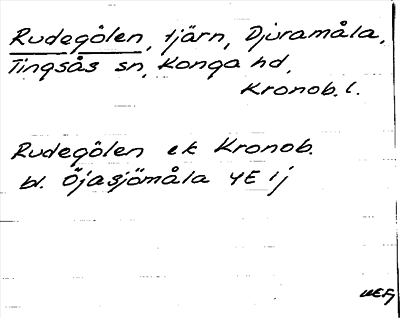 Rudegölen, tjärn, Djuramåla,
Tingsås sn, Konga hd,
Kronob. l.
Rudegölen ek Kronob.
bl. Öjasjömåla 4E 1j